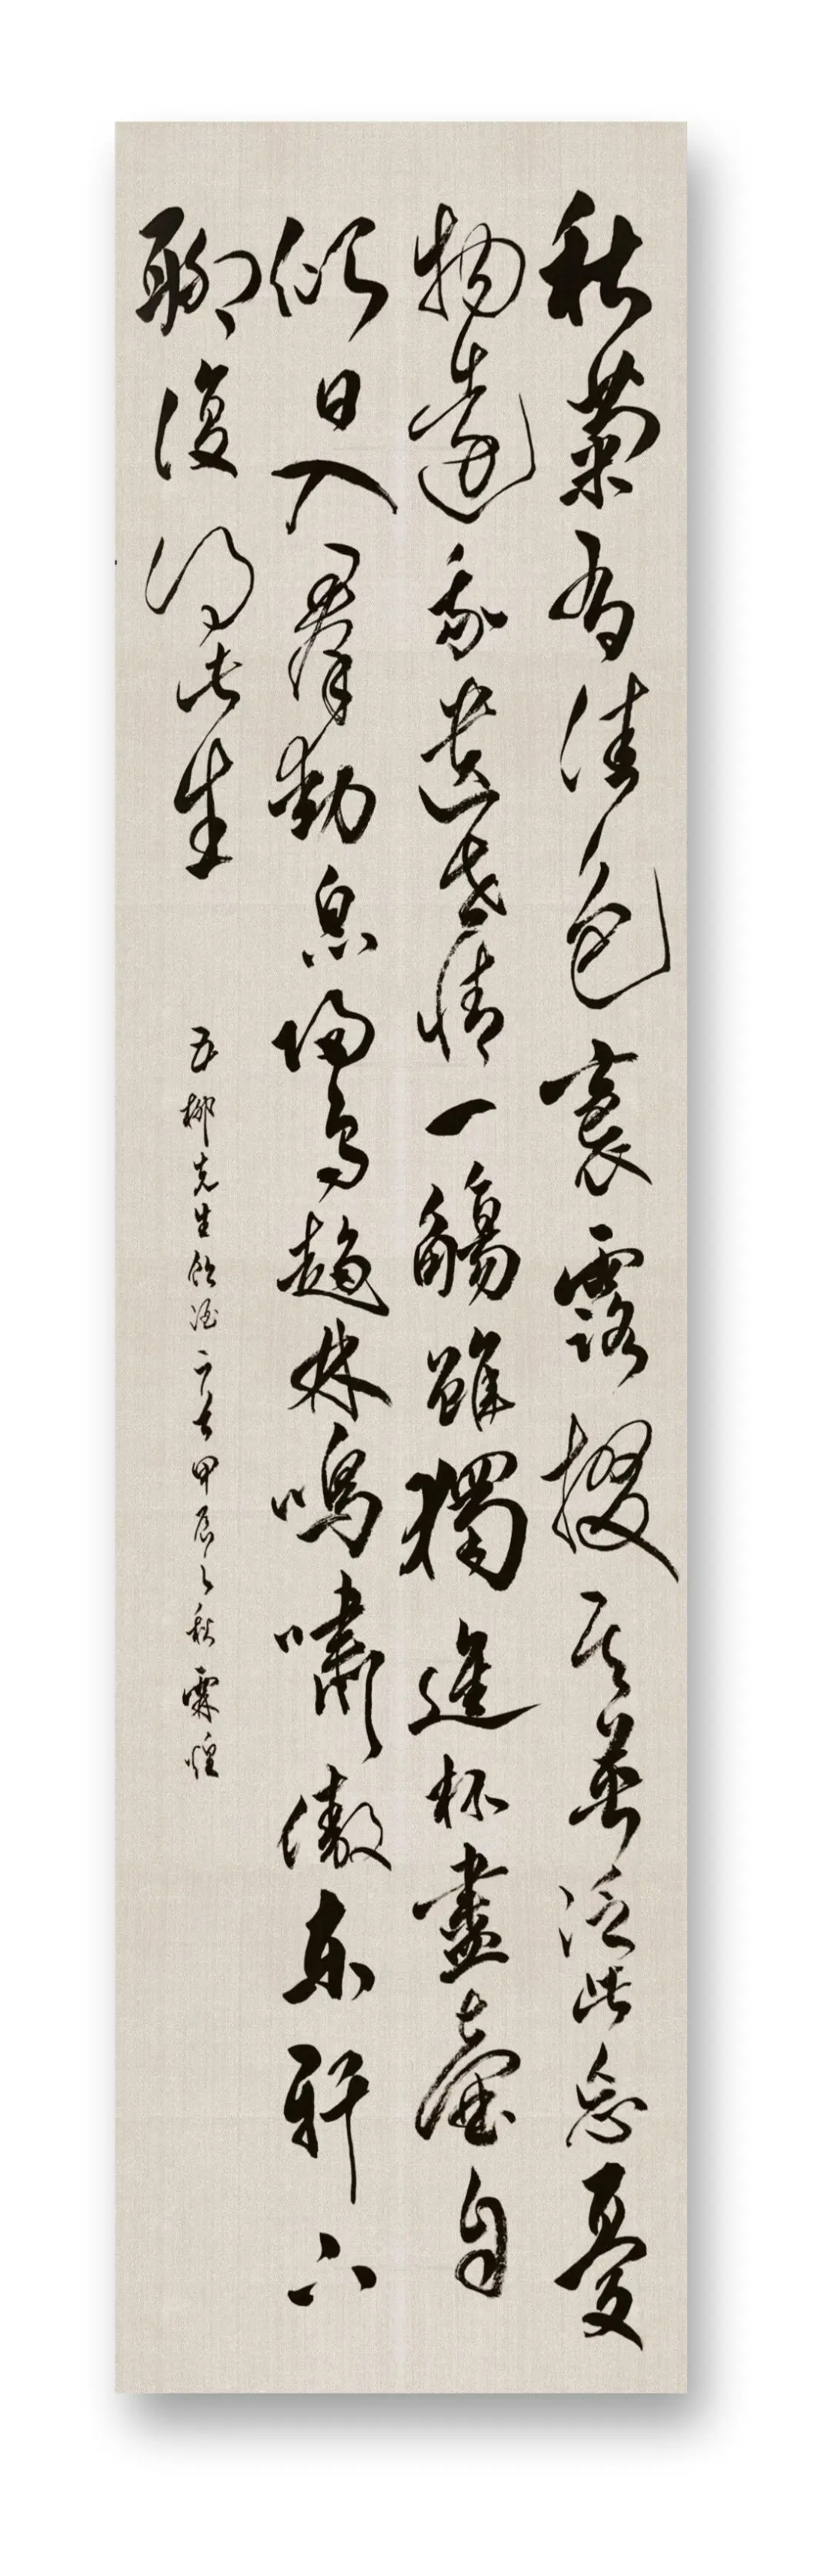 秋菊有佳色裛露掇其英泛此忘憂
物遠我遺世情一觴雖獨進杯盡壺自
傾日入羣動息歸鳥趨林鳴嘯傲東軒下
聊復得此生
五柳先生飲酒之七甲辰之秋霖煌